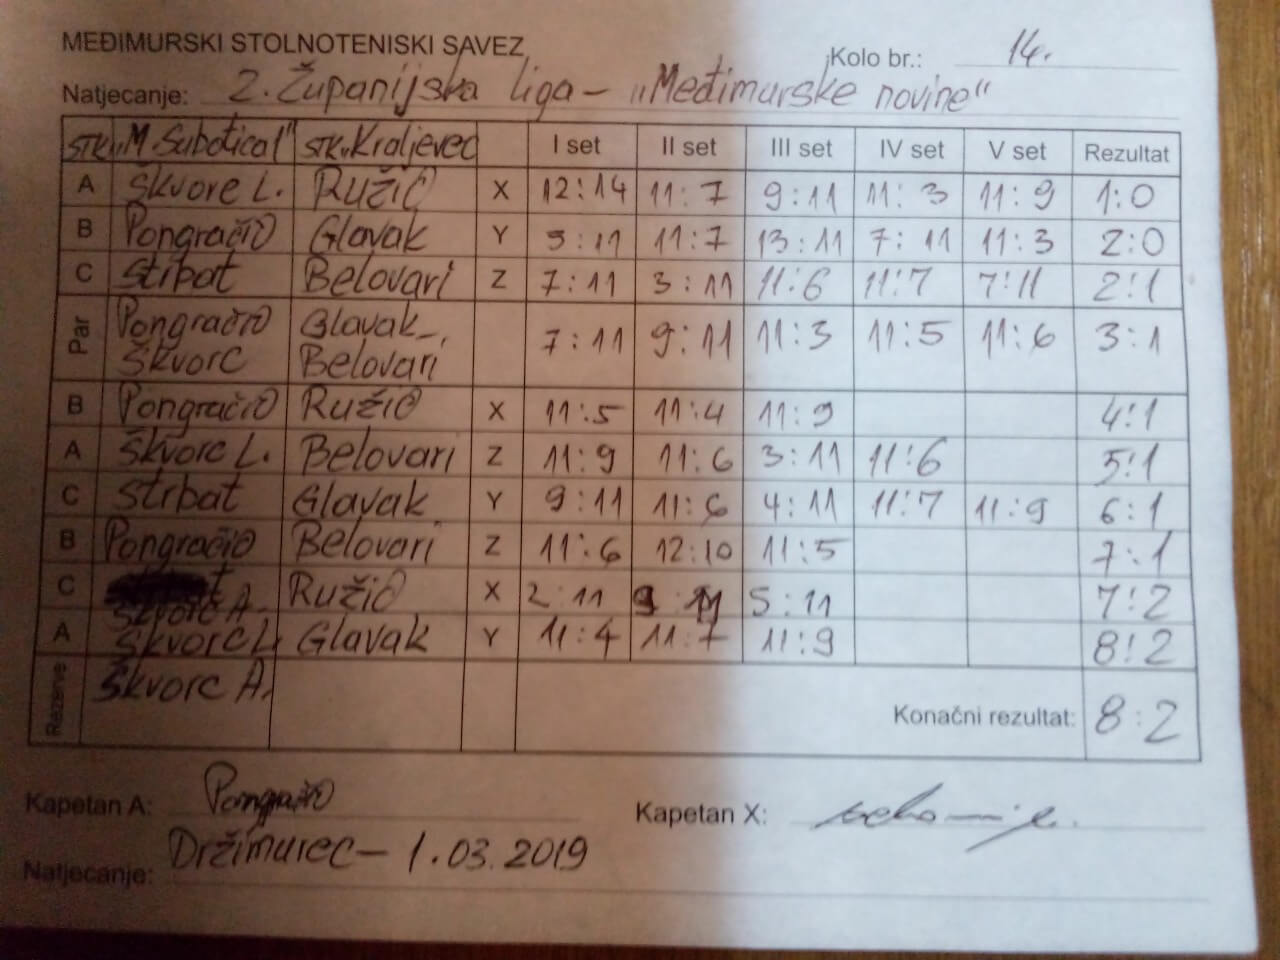 MEĐIMURSKI STOLNOTENISKI SAVEZ
Kolo br.: 14.
Natjecanje: 2. Županijska liga - "Međimurske novine"
STK "M. Subotica" STK "Kraljevec" I set II set III set IV set V set Rezultat
A Škvorc L. Ružić X 12:14 11:7 9:11 11:3 11:9 1:0
B Pongračić Glavak Y 5:11 11:7 13:11 7:11 11:3 2:0
C Štrbat Belovari Z 7:11 3:11 11:6 11:7 7:11 2:1
Par Pongračić Škvorc Glavak - Belovari 7:11 9:11 11:3 11:5 11:6 3:1
B Pongračić Ružić X 11:5 11:4 11:9 4:1
A Škvorc L. Belovari Z 11:9 11:6 3:11 11:6 5:1
C Štrbat Glavak Y 9:11 11:6 4:11 11:7 11:9 6:1
B Pongračić Belovari Z 11:6 12:10 11:5 7:1
C Škvorc A. Ružić X 2:11 9:11 5:11 7:2
A Škvorc L. Glavak Y 11:4 11:7 11:9 8:2
Rezerve Škvorc A.
Konačni rezultat: 8:2
Kapetan A: Pongračić
Kapetan X:
Natjecanje: Držimurec - 1.03.2019